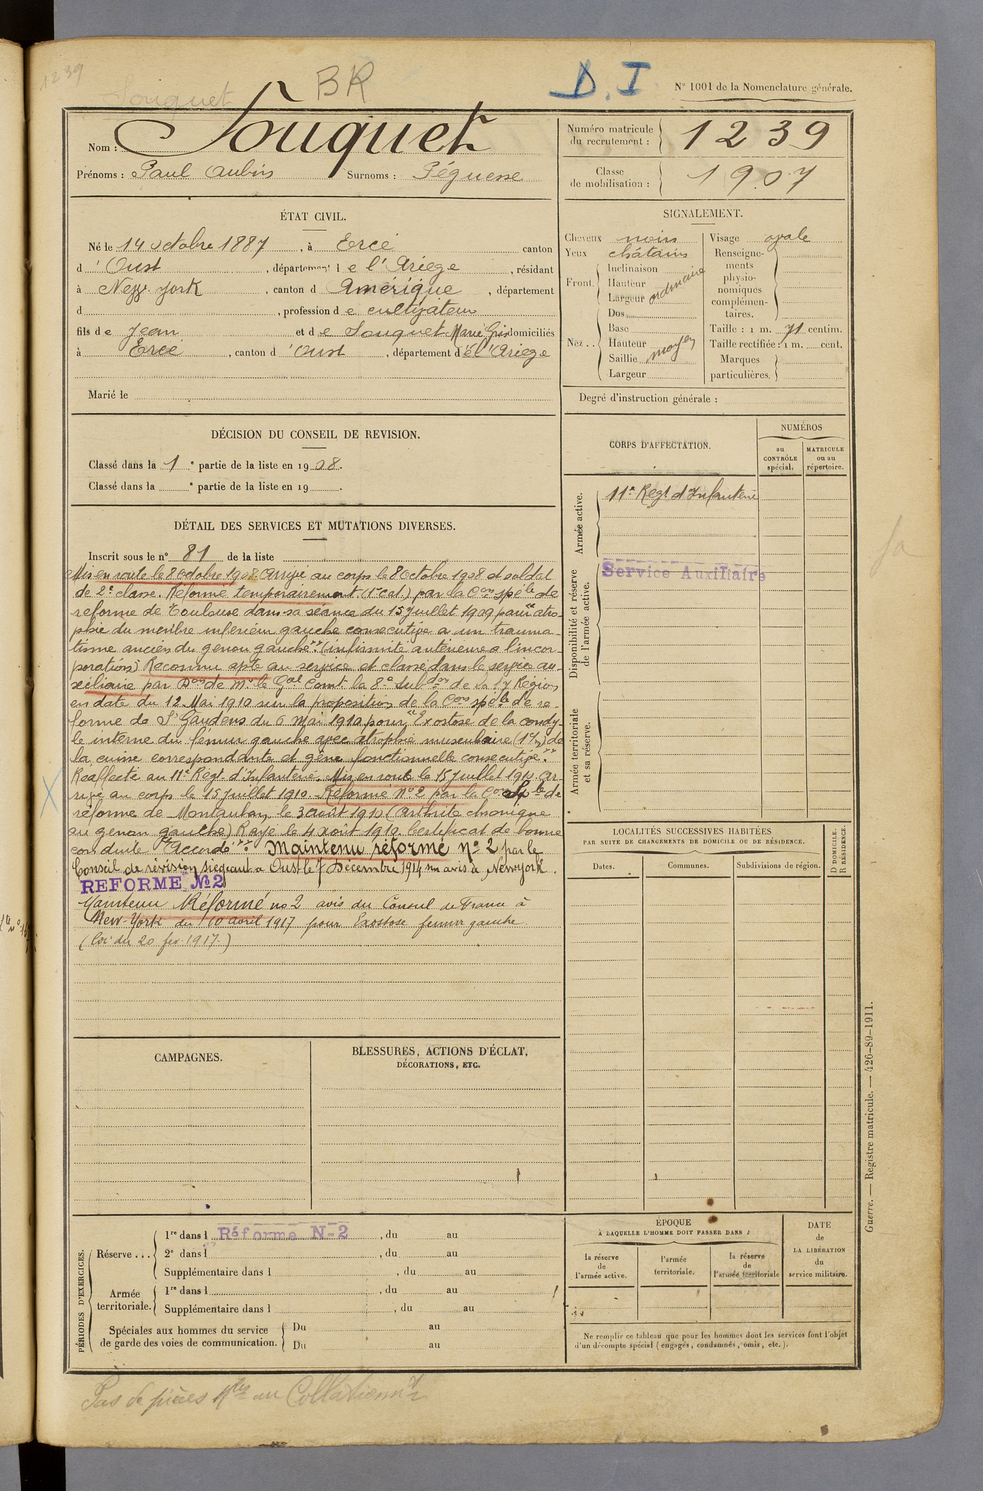 1239
Souquet
BR
D. I
N° 1001 de la Nomenclature générale.
Nom : Souquet
Prénoms : Paul Aubin Surnoms : Péguesse
Numéro matricule du recrutement : 1239
Classe de mobilisation : 1907
ÉTAT CIVIL.
Né le 14 octobre 1887, à Ercé canton
d'Oust, département de l'Ariège, résidant
à New-york, canton d Amérique, département
d , profession de cultivateur
fils de Jean et de Souquet Marie domiciliés
à Ercé, canton d'Oust, département de l'Ariège
Marié le
SIGNALEMENT.
Cheveux noirs
Yeux châtains
Front. Inclinaison
Hauteur
Largeur ordinaire
Nez .. Dos
Base
Hauteur
Saillie moyen
Largeur
Visage ovale
Renseigne-
ments
physio-
nomiques
complémen-
taires.
Taille : 1 m. 71 centim.
Taille rectifiée : 1 m. cent.
Marques
particulières.
Degré d'instruction générale :
DÉCISION DU CONSEIL DE REVISION.
Classé dans la 1e partie de la liste en 1908.
Classé dans la e partie de la liste en 19
DÉTAIL DES SERVICES ET MUTATIONS DIVERSES.
Inscrit sous le n° 81 de la liste
Mis en route le 8 octobre 1908. Arrivé au corps le 8 octobre 1908 et soldat
de 2e classe. Réformé temporairement (1e cat.) par la Con spéle de
réforme de Toulouse dans sa séance du 15 juillet 1909 pour "atro-
phie du membre inférieur gauche consécutive à un trauma-
tisme ancien du genou gauche" (infirmité antérieure à l'incor-
poration) Reconnu apte au service et classé dans le service au-
xiliaire par Don de Mr le Gal Comt la 8e subdon de la 17 Région
en date du 12 Mai 1910 sur la proposition de la Con spéle de ré-
forme de St Gaudens du 6 Mai 1910 pour "Exostose de la condy-
le interne du fémur gauche avec atrophie musculaire de
la cuisse correspondante et gêne fonctionnelle consécutive."
Réaffecté au 11e Régt d'Infanterie. Mis en route le 15 juillet 1910. Ar-
rivé au corps le 15 juillet 1910. Réformé N° 2 par la Con spéle de
réforme de Montauban le 3 août 1910 (arthrite chronique
au genou gauche) Rayé le 4 août 1910. Certificat de bonne
conduite "Accordé". Maintenu réformé n° 2 par le
Conseil de révision siégeant à Oust le 7 Décembre 1914 avis à Newyork.
REFORMÉ N° 2
Maintenu Réformé no 2 avis du Consul de France à
New-York du 10 avril 1917 pour Exostose fémur gauche
(loi du 20 fev. 1917.)
CORPS D'AFFECTATION.
NUMÉROS
au CONTRÔLE spécial.
MATRICULE ou au répertoire.
Armée active.
11e Régt d'Infanterie
Disponibilité et réserve de l'armée active.
Service Auxiliaire
Armée territoriale et sa réserve.
LOCALITÉS SUCCESSIVES HABITÉES
PAR SUITE DE CHANGEMENTS DE DOMICILE OU DE RÉSIDENCE.
Dates.
Communes.
Subdivisions de région.
D DOMICILE.
R RÉSIDENCE.
CAMPAGNES.
BLESSURES, ACTIONS D'ÉCLAT,
DÉCORATIONS, ETC.
PÉRIODES D'EXERCICES.
Réserve ... 1re dans l Réformé N-2, du au
2e dans l , du au
Supplémentaire dans l , du au
Armée territoriale. 1re dans l , du au
Supplémentaire dans l , du au
Spéciales aux hommes du service
de garde des voies de communication. Du au
Du au
ÉPOQUE
À LAQUELLE L'HOMME DOIT PASSER DANS :
la réserve de l'armée active.
l'armée territoriale.
la réserve de l'armée territoriale
DATE
de
LA LIBÉRATION
du
service militaire.
Ne remplir ce tableau que pour les hommes dont les services font l'objet
d'un décompte spécial (engagés, condamnés, omis, etc.).
Guerre. — Registre matricule. — 426-89-1911.
Pas de pièces au